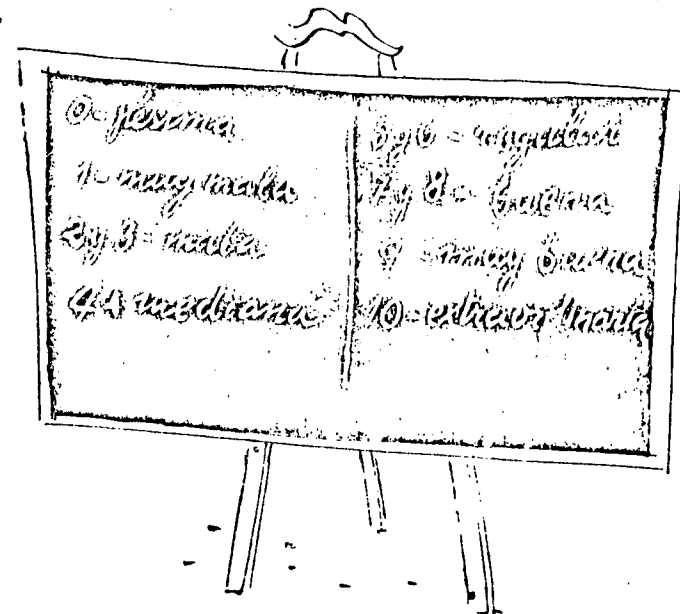 0 - pésima
1 - muy mala
2 y 3 - mala
4 - mediana
5 y 6 - regular
7 y 8 - buena
9 - muy buena
10 - extraordinaria